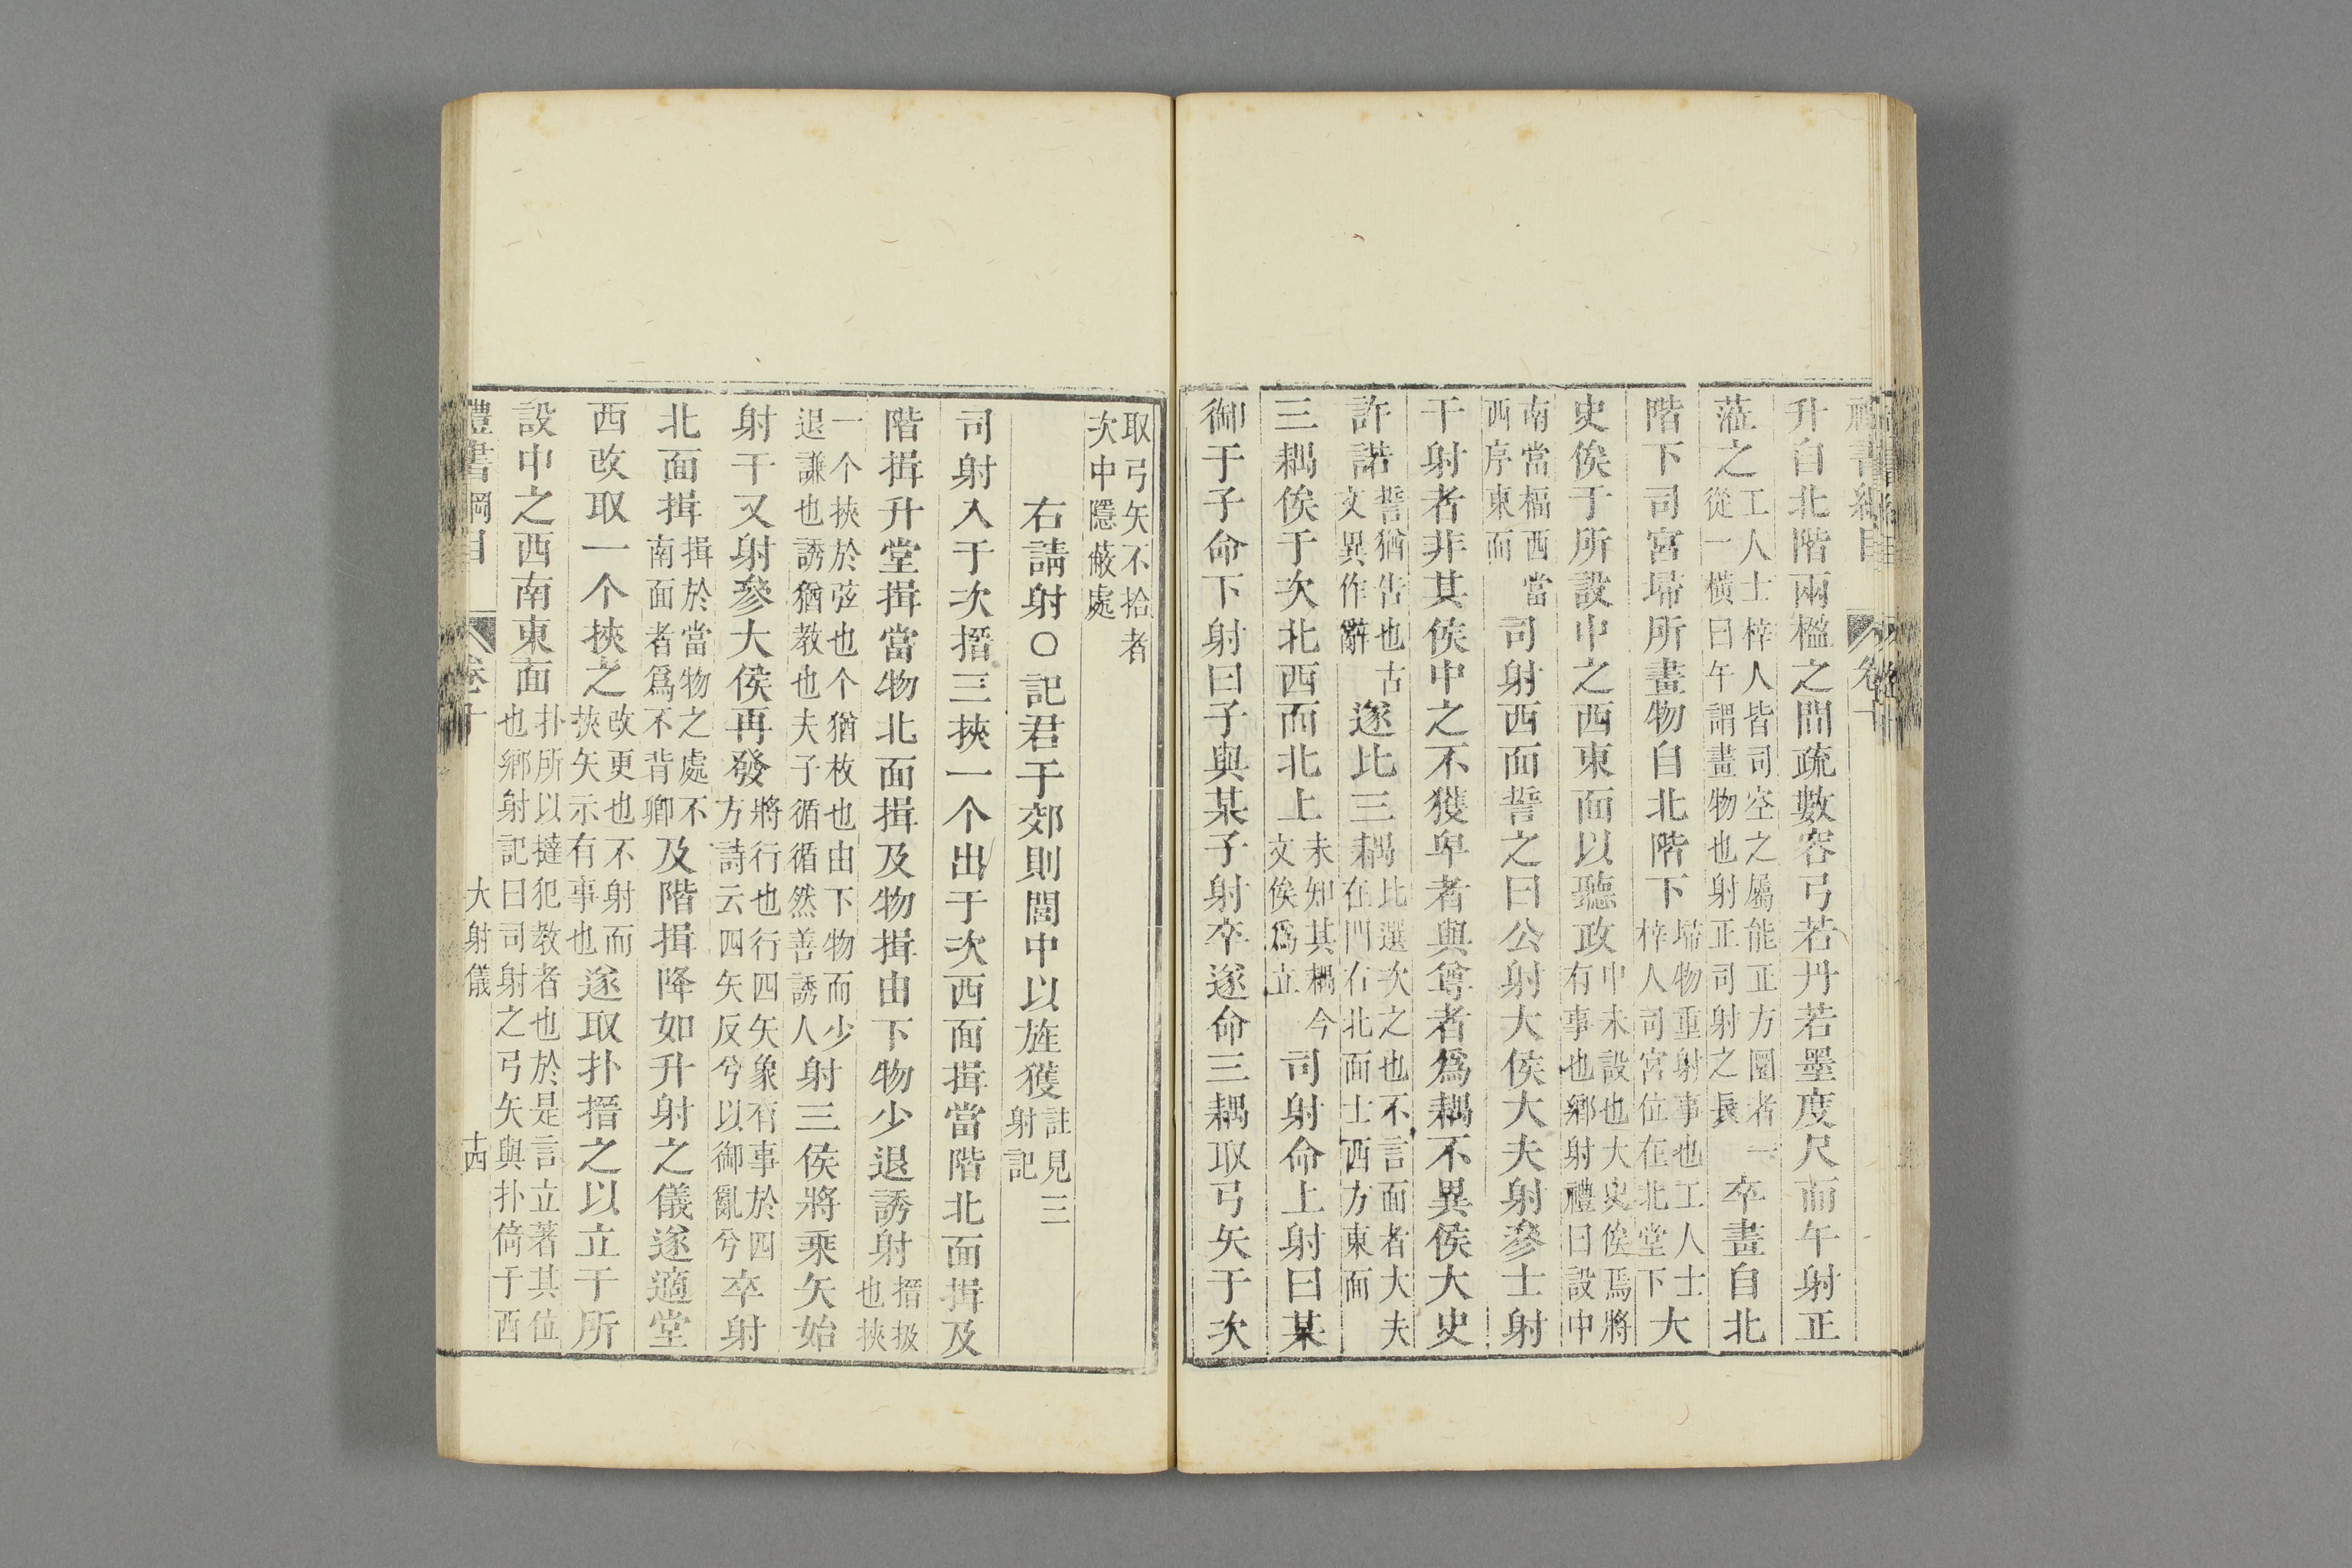 禮書綱目 卷十
升自北階兩楹之間疏數容弓若丹若墨度尺而午射正
蒞之工人士梓人皆司空之屬能正方圜者一從一橫曰午謂畫物也射正司射之長卒畫自北
階下司宮埽所畫物自北階下埽物重射事也工人士梓人司宮位在北堂下大
史俟于所設中之西東面以聽政中未設也大史俟焉將有事也鄉射禮曰設中
南當楅西當西序東面司射西面誓之曰公射大侯大夫射參士射
干射者非其侯中之不獲卑者與尊者爲耦不異侯大史
許諾誓猶告也古文異作辭遂比三耦比選次之也不言面者大夫在門右北面士西方東面
三耦俟于次北西面北上未知其耦今文俟爲立司射命上射曰某
御于子命下射曰子與某子射卒遂命三耦取弓矢于次
取弓矢不拾者次中隱蔽處
右請射○記君于郊則閭中以旌獲註見三射記
司射入于次搢三挾一个出于次西面揖當階北面揖及
階揖升堂揖當物北面揖及物揖由下物少退誘射搢扱也挾
一个挾於弦也个猶枚也由下物而少退謙也誘猶教也夫子循循然善誘人射三侯將乘矢始
射干又射參大侯再發將行也行四矢象有事於四方詩云四矢反兮以御亂兮卒射
北面揖揖於當物之處不南面者爲不背卿及階揖降如升射之儀遂適堂
西改取一个挾之改更也不射而挾矢示有事也遂取扑搢之以立于所
設中之西南東面扑所以撻犯教者也於是言立著其位也鄉射記曰司射之弓矢與扑倚于西
禮書綱目 卷十 大射儀 十四